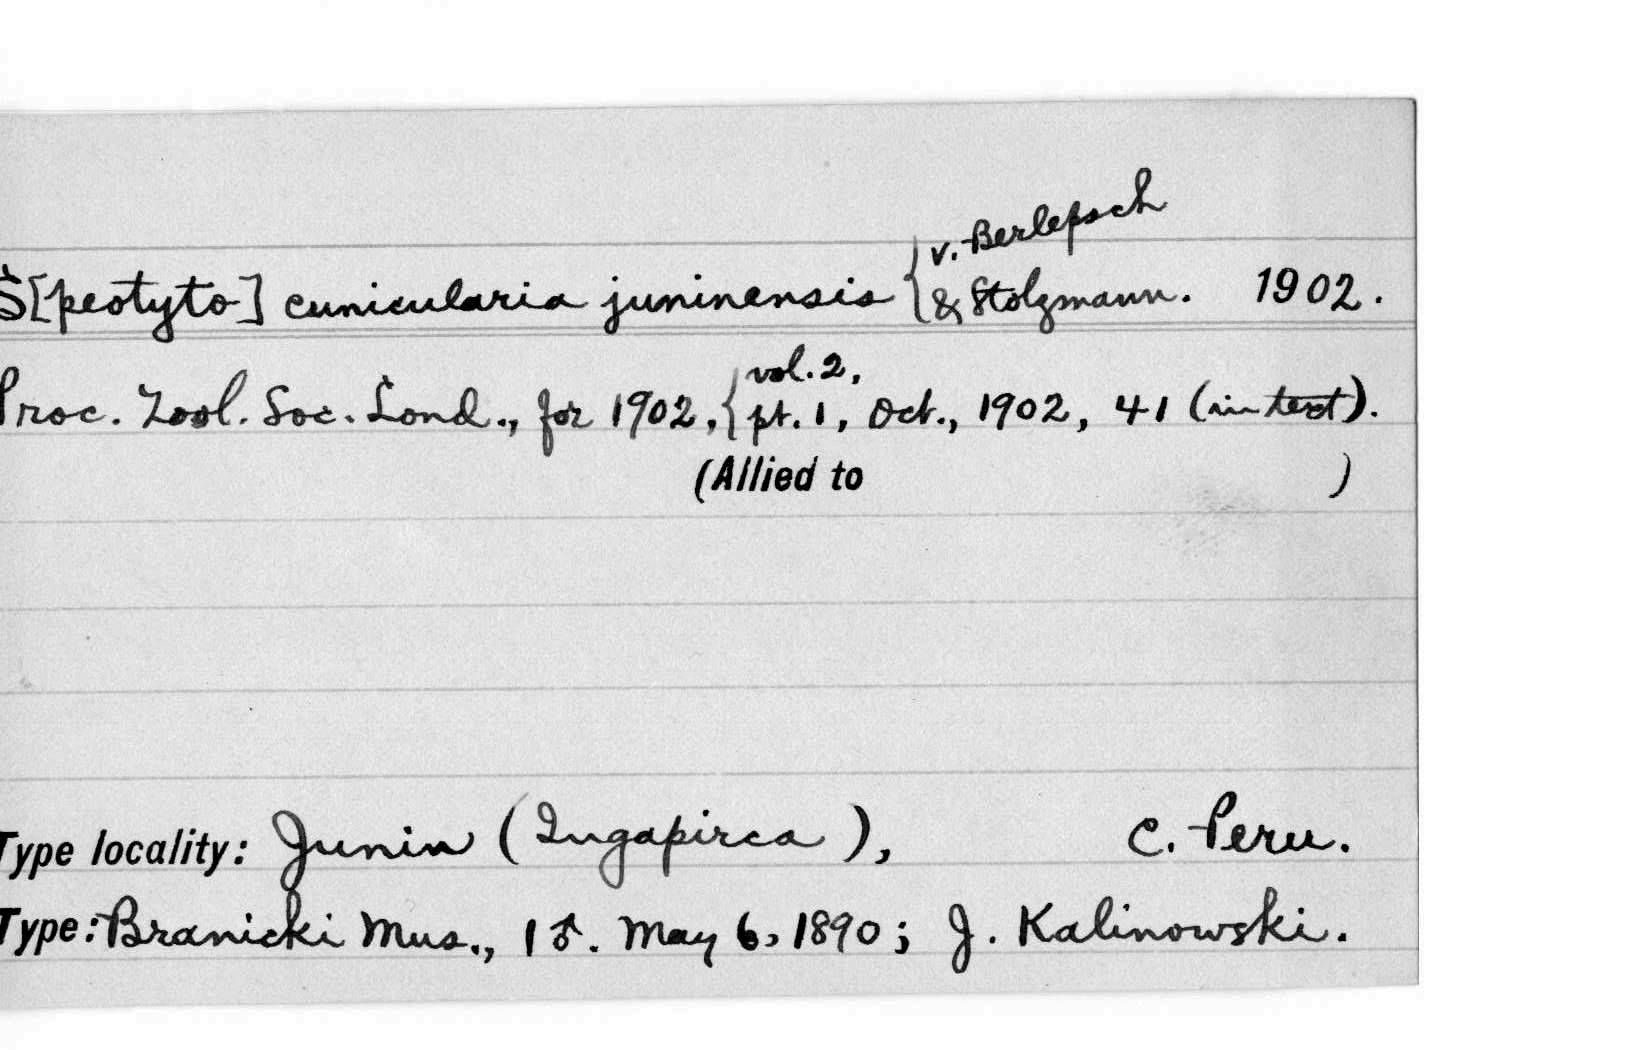 S[peotyto] cunicularia juninensis { v. Berlepsch & Stolzmann. 1902.
Proc. Zool. Soc. Lond., for 1902, { vol. 2, pt. 1, Oct., 1902, 41 (in text).
(Allied to )
Type locality: Junin (Ingapirca), C. Peru.
Type: Branicki Mus., 1 ♂. May 6, 1890; J. Kalinowski.